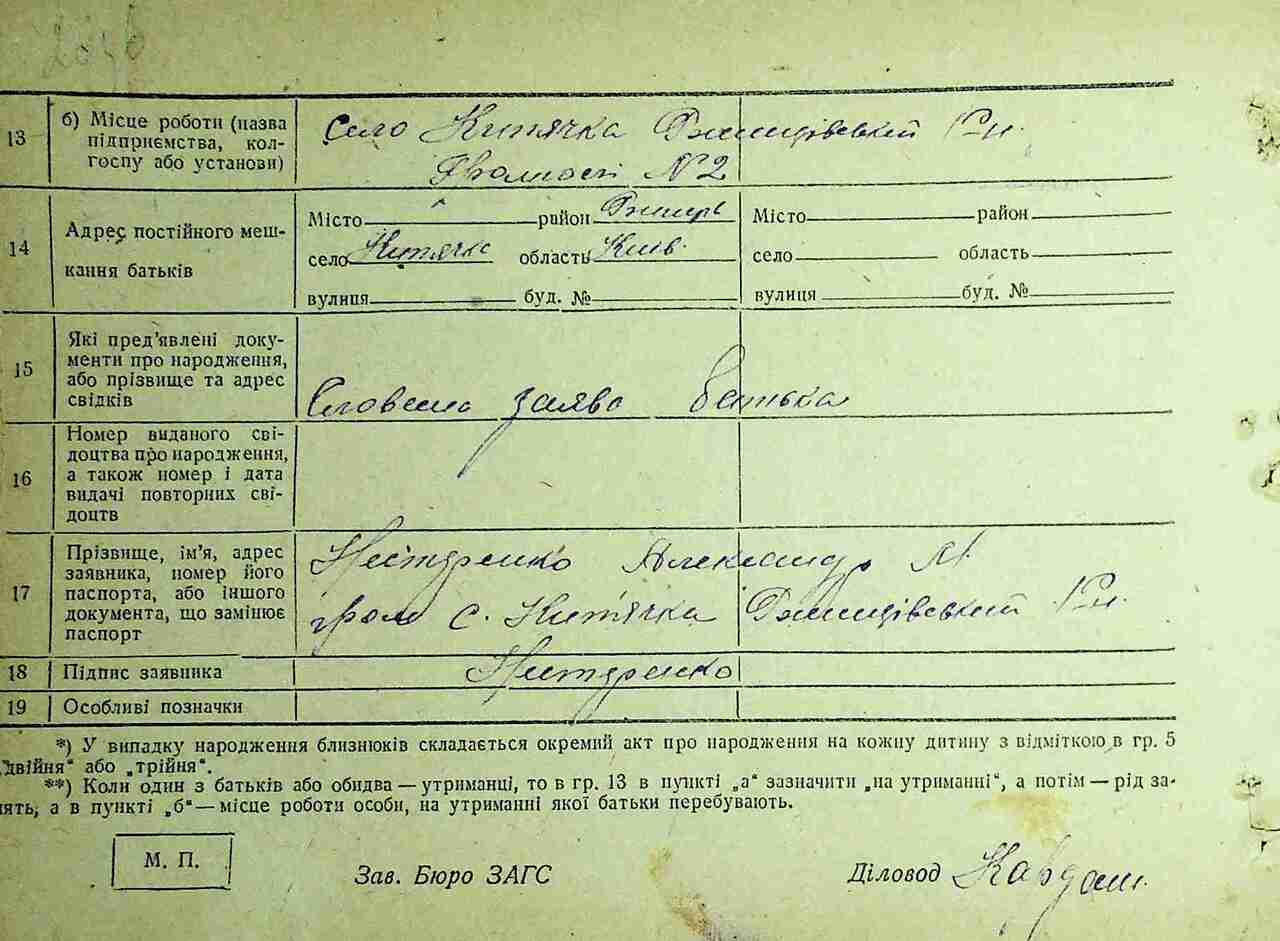 13 б) Місце роботи (назва підприємства, колгоспу або установи)
село Кип'ячка Ржищівський Р-н.
№ 2
14 Адрес постійного мешкання батьків
Місто район Ржищів Місто район
село Кип'ячка область Київ. село область
вулиця буд. № вулиця буд. №
15 Які пред'явлені документи про народження, або прізвище та адрес свідків
Словесна заява батька
16 Номер виданого свідоцтва про народження, а також номер і дата видачі повторних свідоцтв
17 Прізвище, ім'я, адрес заявника, номер його паспорта, або іншого документа, що замінює паспорт
Александр
с. Кип'ячка Ржищівський Р-н.
18 Підпис заявника
19 Особливі позначки
*) У випадку народження близнюків складається окремий акт про народження на кожну дитину з відміткою в гр. 5
„двійня" або „трійня".
**) Коли один з батьків або обидва — утриманці, то в гр. 13 в пункті „а" зазначити „на утриманні", а потім — рід за-
нять, а в пункті „б" — місце роботи особи, на утриманні якої батьки перебувають.
М. П.
Зав. Бюро ЗАГС
Діловод